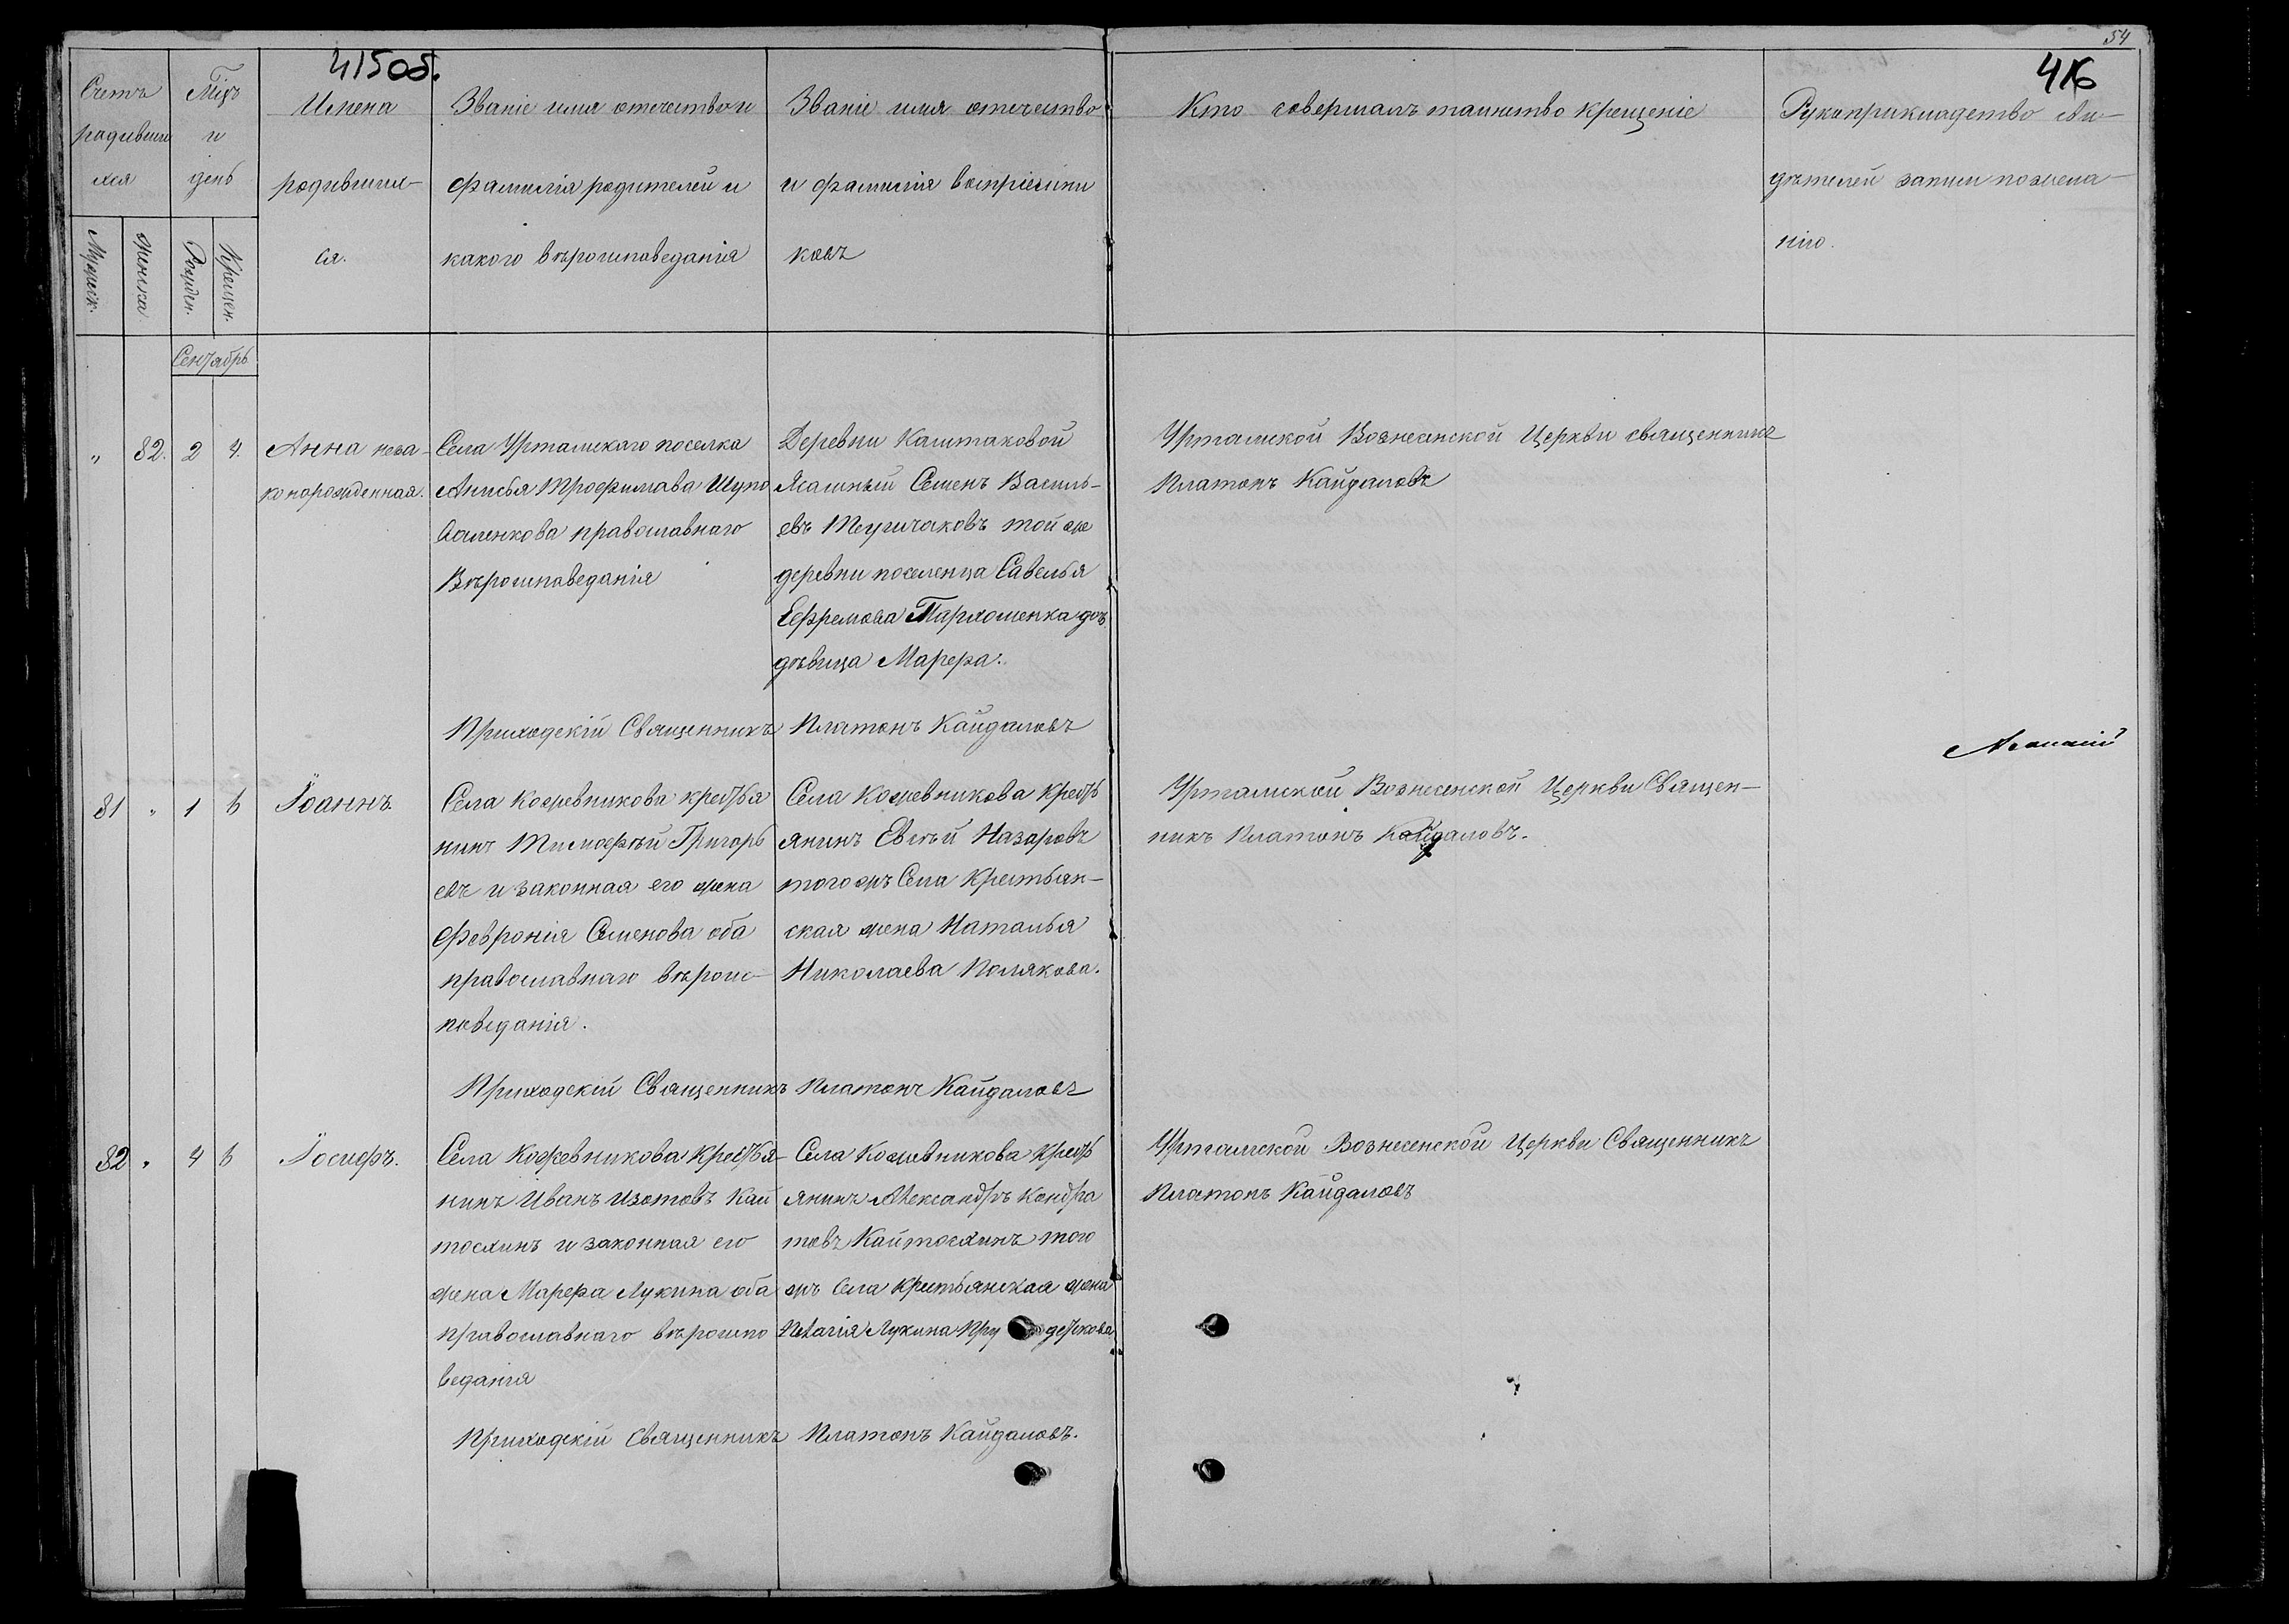 415об.
54
416
Счетъ
родивши
хся
Мужеск.
Женска
Мцъ
и
день
Рожден.
Крещен.
Имена
родившихъ
ся.
Званіе имя отечество и
фамилія родителей и
какого вѣроисповеданія
Званіе имя отечество
и фамилія воспріемни
ковъ
Кто совершалъ таинство крещеніе
Рукоприкладство сви-
дѣтелей записи по жела-
нію.
Сентябрь
„ 82. 2 4.
Анна неза-
конорожденная.
Села Уртамскаго поселка
Анисья Трофимава
православнаго
Вѣроисповеданія
Деревни Каштаковой
Ясашный Семенъ Василь-
евъ той же
деревни поселенца Савелья
Ефремова Пархоменка дочь
дѣвица Марѳа.
Уртамской Вознесенской Церкви священникъ
Платонъ Кайдаловъ
Приходскій Священникъ Платонъ Кайдаловъ
81 „ 1 6
Іоаннъ.
Села Кожевникова крестья
нинъ Тимофѣй Григорь
евъ и законная его жена
Февронія Семенова оба
православнаго вѣроис-
поведанія.
Села Кожевникова Кресть
янинъ Евсѣй Назаровъ
того жъ Села Крестьян-
ская жена Наталья
Николаева Полякова.
Уртамской Вознесенской Церкви Священ-
никъ Платонъ Кайдаловъ.
Приходскій Священникъ Платонъ Кайдаловъ
82 „ 4 6
Іосифъ.
Села Кожевникова Крестья-
нинъ Иванъ Изотовъ Кай
тосхинъ и законная его
жена Марѳа Лукина оба
православнаго вѣроиспо
веданія
Села Кожевникова Кресть
янинъ Александръ Кондра
товъ Кайтосхинъ того
жъ Села Крестьянская жена
Пелагія Лукина
Уртамской Вознесенской Церкви Священникъ
Платонъ Кайдаловъ
Приходскій Священникъ Платонъ Кайдаловъ.